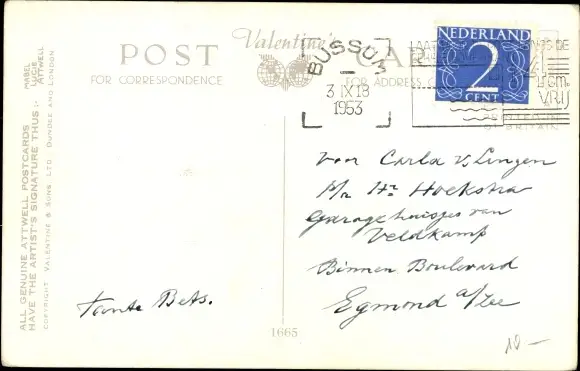 MABEL
LUCIE
ATTWELL
ALL GENUINE ATTWELL POSTCARDS
HAVE THE ARTIST'S SIGNATURE THUS :-
COPYRIGHT VALENTINE & SONS LTD. DUNDEE AND LONDON
POST
FOR CORRESPONDENCE
Valentine's
CARD
FOR ADDRESS
BUSSUM
3 IX 18
1953
NEDERLAND
2
CENT
VRIJ
BRITAIN
voor Carla v. Lingen
p/a Hr Hoekstra
Garagehuisjes van
Veldkamp
Binnen Boulevard
Egmond a/Zee
Tante Bets.
1665
10-